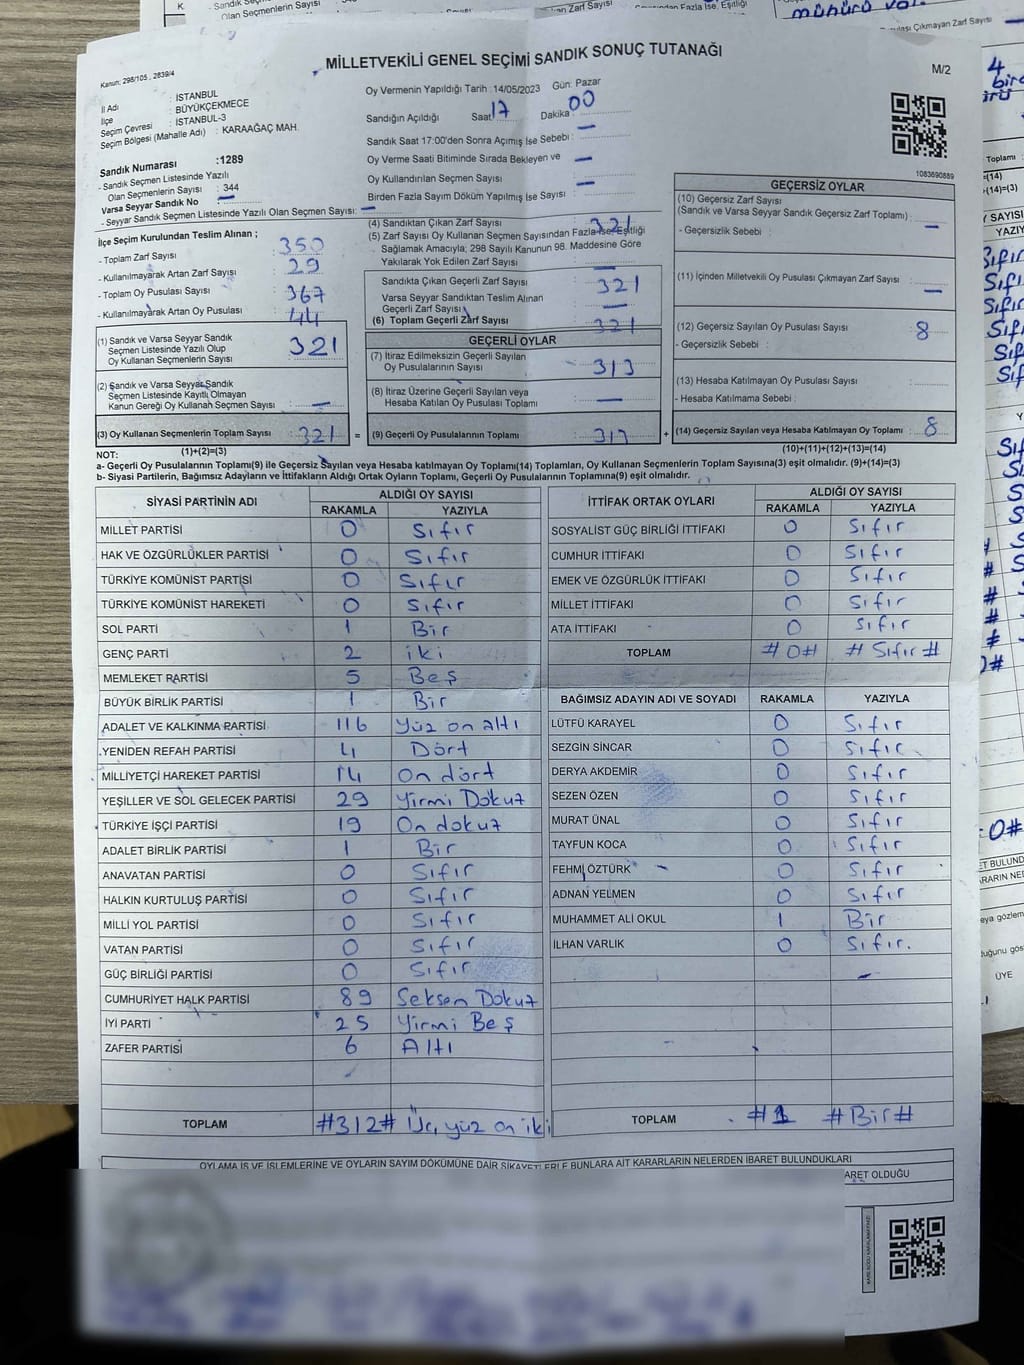 MİLLETVEKİLİ GENEL SEÇİMİ SANDIK SONUÇ TUTANAĞI
M/2
Kanun: 298/105 , 2839/4
İl Adı : İSTANBUL
İlçe : BÜYÜKÇEKMECE
Seçim Çevresi : İSTANBUL-3
Seçim Bölgesi (Mahalle Adı) : KARAAĞAÇ MAH.
Sandık Numarası :1289
- Sandık Seçmen Listesinde Yazılı
Olan Seçmenlerin Sayısı : 344
Varsa Seyyar Sandık No : —
- Seyyar Sandık Seçmen Listesinde Yazılı Olan Seçmen Sayısı: —
Oy Vermenin Yapıldığı Tarih : 14/05/2023 Gün: Pazar
Sandığın Açıldığı Saat 17 Dakika 00
Sandık Saat 17:00'den Sonra Açımış İse Sebebi : —
Oy Verme Saati Bitiminde Sırada Bekleyen ve —
Oy Kullandırılan Seçmen Sayısı
Birden Fazla Sayım Döküm Yapılmış İse Sayısı : —
1083690889
İlçe Seçim Kurulundan Teslim Alınan ;
- Toplam Zarf Sayısı : 350
- Kullanılmayarak Artan Zarf Sayısı : 29
- Toplam Oy Pusulası Sayısı : 367
- Kullanılmayarak Artan Oy Pusulası : 44
(1) Sandık ve Varsa Seyyar Sandık
Seçmen Listesinde Yazılı Olup
Oy Kullanan Seçmenlerin Sayısı 321
(2) Sandık ve Varsa Seyyar Sandık
Seçmen Listesinde Kayıtlı Olmayan
Kanun Gereği Oy Kullanan Seçmen Sayısı : —
(3) Oy Kullanan Seçmenlerin Toplam Sayısı : 321
(1)+(2)=(3)
(4) Sandıktan Çıkan Zarf Sayısı : 321
(5) Zarf Sayısı Oy Kullanan Seçmen Sayısından Fazla ise, Eşitliği
Sağlamak Amacıyla; 298 Sayılı Kanunun 98. Maddesine Göre
Yakılarak Yok Edilen Zarf Sayısı : —
Sandıkta Çıkan Geçerli Zarf Sayısı : 321
Varsa Seyyar Sandıktan Teslim Alınan
Geçerli Zarf Sayısı : —
(6) Toplam Geçerli Zarf Sayısı : 321
GEÇERLİ OYLAR
(7) İtiraz Edilmeksizin Geçerli Sayılan
Oy Pusulalarının Sayısı : 313
(8) İtiraz Üzerine Geçerli Sayılan veya
Hesaba Katılan Oy Pusulası Toplamı : —
= (9) Geçerli Oy Pusulalarının Toplamı : 313 +
GEÇERSİZ OYLAR
(10) Geçersiz Zarf Sayısı
(Sandık ve Varsa Seyyar Sandık Geçersiz Zarf Toplamı) : —
- Geçersizlik Sebebi :
(11) İçinden Milletvekili Oy Pusulası Çıkmayan Zarf Sayısı : —
(12) Geçersiz Sayılan Oy Pusulası Sayısı : 8
- Geçersizlik Sebebi :
(13) Hesaba Katılmayan Oy Pusulası Sayısı :
- Hesaba Katılmama Sebebi :
(14) Geçersiz Sayılan veya Hesaba Katılmayan Oy Toplamı : 8
(10)+(11)+(12)+(13)=(14)
NOT:
a- Geçerli Oy Pusulalarının Toplamı(9) ile Geçersiz Sayılan veya Hesaba katılmayan Oy Toplamı(14) Toplamları, Oy Kullanan Seçmenlerin Toplam Sayısına(3) eşit olmalıdır. (9)+(14)=(3)
b- Siyasi Partilerin, Bağımsız Adayların ve İttifakların Aldığı Ortak Oyların Toplamı, Geçerli Oy Pusulalarının Toplamına(9) eşit olmalıdır.
SİYASİ PARTİNİN ADI ALDIĞI OY SAYISI
RAKAMLA YAZIYLA
MİLLET PARTİSİ 0 Sıfır
HAK VE ÖZGÜRLÜKLER PARTİSİ 0 Sıfır
TÜRKİYE KOMÜNİST PARTİSİ 0 Sıfır
TÜRKİYE KOMÜNİST HAREKETİ 0 Sıfır
SOL PARTİ 1 Bir
GENÇ PARTİ 2 iki
MEMLEKET PARTİSİ 5 Beş
BÜYÜK BİRLİK PARTİSİ 1 Bir
ADALET VE KALKINMA PARTİSİ 116 Yüz on altı
YENİDEN REFAH PARTİSİ 4 Dört
MİLLİYETÇİ HAREKET PARTİSİ 14 On dört
YEŞİLLER VE SOL GELECEK PARTİSİ 29 Yirmi Dokuz
TÜRKİYE İŞÇİ PARTİSİ 19 On dokuz
ADALET BİRLİK PARTİSİ 1 Bir
ANAVATAN PARTİSİ 0 Sıfır
HALKIN KURTULUŞ PARTİSİ 0 Sıfır
MİLLİ YOL PARTİSİ 0 Sıfır
VATAN PARTİSİ 0 Sıfır
GÜÇ BİRLİĞİ PARTİSİ 0 Sıfır
CUMHURİYET HALK PARTİSİ 89 Seksen Dokuz
İYİ PARTİ 25 Yirmi Beş
ZAFER PARTİSİ 6 Altı
TOPLAM #312# Üç yüz on iki
İTTİFAK ORTAK OYLARI ALDIĞI OY SAYISI
RAKAMLA YAZIYLA
SOSYALİST GÜÇ BİRLİĞİ İTTİFAKI 0 Sıfır
CUMHUR İTTİFAKI 0 Sıfır
EMEK VE ÖZGÜRLÜK İTTİFAKI 0 Sıfır
MİLLET İTTİFAKI 0 Sıfır
ATA İTTİFAKI 0 Sıfır
TOPLAM #0# # Sıfır #
BAĞIMSIZ ADAYIN ADI VE SOYADI RAKAMLA YAZIYLA
LÜTFÜ KARAYEL 0 Sıfır
SEZGİN SİNCAR 0 Sıfır
DERYA AKDEMİR 0 Sıfır
SEZEN ÖZEN 0 Sıfır
MURAT ÜNAL 0 Sıfır
TAYFUN KOCA 0 Sıfır
FEHMİ ÖZTÜRK 0 Sıfır
ADNAN YELMEN 0 Sıfır
MUHAMMET ALİ OKUL 1 Bir
İLHAN VARLIK 0 Sıfır.
TOPLAM #1 #Bir#
OYLAMA İŞ VE İŞLEMLERİNE VE OYLARIN SAYIM DÖKÜMÜNE DAİR ŞİKAYETLERLE BUNLARA AİT KARARLARIN NELERDEN İBARET BULUNDUKLARI
ARET OLDUĞU